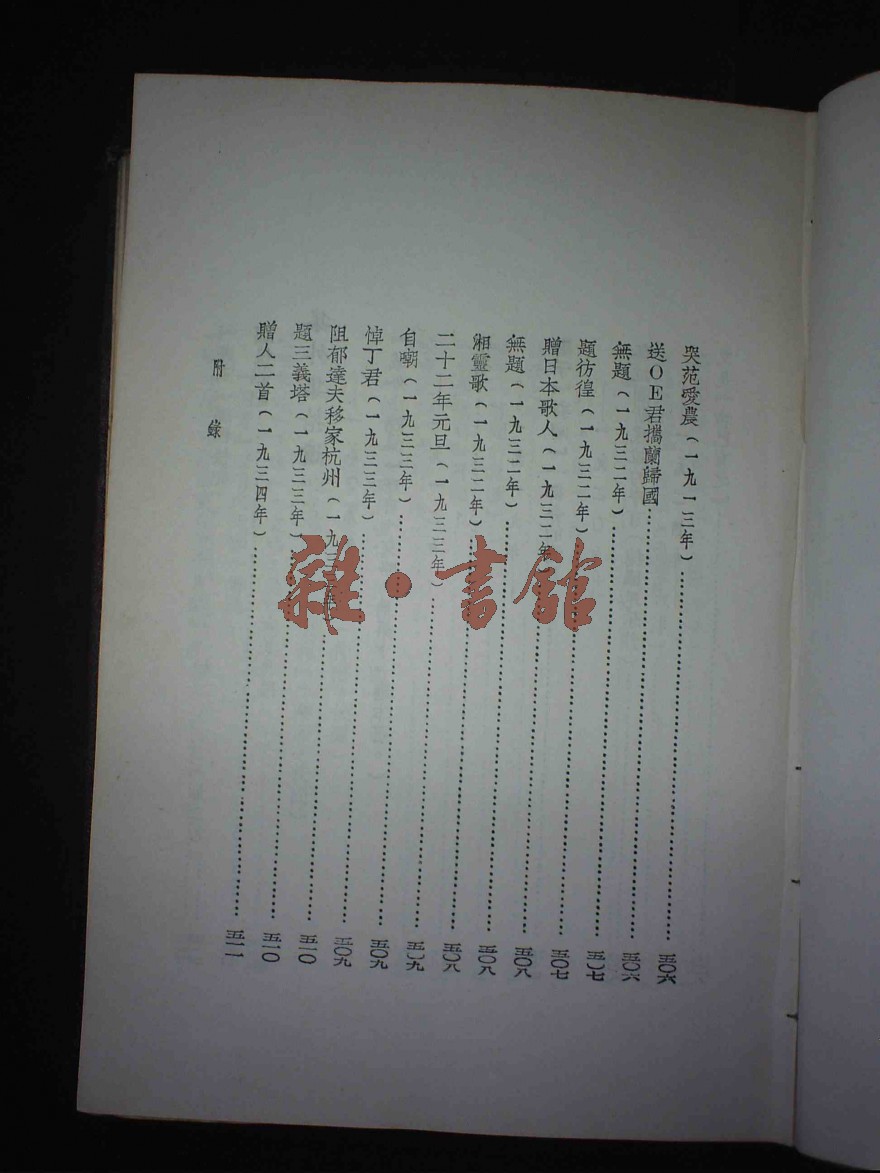 哭范愛農（一九一三年）……五〇六
送OE君攜蘭歸國……五〇六
無題（一九三二年）……五〇七
題彷徨（一九三二年）……五〇七
贈日本歌人（一九三二年）……五〇八
無題（一九三二年）……五〇八
湘靈歌（一九三二年）……五〇八
二十二年元旦（一九三三年）……五〇九
自嘲（一九三三年）……五〇九
悼丁君（一九三三年）……五〇九
阻郁達夫移家杭州（一九三年）……五一〇
題三義塔（一九三三年）……五一〇
贈人二首（一九三四年）……五一一
附錄
雜·書館